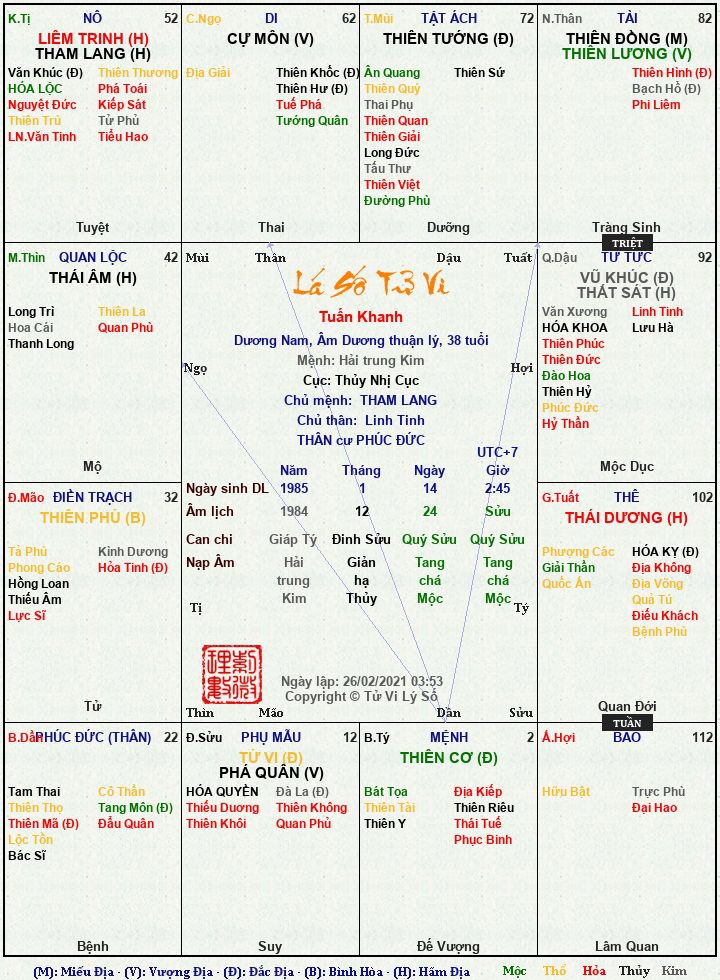 K.Tị NÔ 52
LIÊM TRINH (H)
THAM LANG (H)
Văn Khúc (Đ) Thiên Thương
HÓA LỘC Phá Toái
Nguyệt Đức Kiếp Sát
Thiên Trù Tử Phù
LN.Văn Tinh Tiểu Hao
Tuyệt
C.Ngọ DI 62
CỰ MÔN (V)
Địa Giải Thiên Khốc (Đ)
Thiên Hư (Đ)
Tuế Phá
Tướng Quân
Thai
T.Mùi TẬT ÁCH 72
THIÊN TƯỚNG (Đ)
Ân Quang Thiên Sứ
Thiên Quý
Thai Phụ
Thiên Quan
Thiên Giải
Long Đức
Tấu Thư
Thiên Việt
Đường Phù
Dưỡng
N.Thân TÀI 82
THIÊN ĐỒNG (M)
THIÊN LƯƠNG (V)
Thiên Hình (Đ)
Bạch Hổ (Đ)
Phi Liêm
Tràng Sinh
TRIỆT
M.Thìn QUAN LỘC 42
THÁI ÂM (H)
Long Trì Thiên La
Hoa Cái Quan Phù
Thanh Long
Mộ
Mùi Thân Dậu Tuất
Lá Số Tử Vi
Tuấn Khanh
Dương Nam, Âm Dương thuận lý, 38 tuổi
Mệnh: Hải trung Kim
Ngọ Hợi
Cục: Thủy Nhị Cục
Chủ mệnh: THAM LANG
Chủ thân: Linh Tinh
THÂN cư PHÚC ĐỨC
UTC+7
Năm Tháng Ngày Giờ
Ngày sinh DL 1985 1 14 2:45
Âm lịch 1984 12 24 Sửu
Can chi Giáp Tý Đinh Sửu Quý Sửu Quý Sửu
Nạp Âm Hải Giản Tang Tang
trung hạ chá chá
Kim Thủy Mộc Mộc
Tị Tý
Ngày lập: 26/02/2021 03:53
Copyright © Tử Vi Lý Số
Thìn Mão Dần Sửu
Q.Dậu TỬ TỨC 92
VŨ KHÚC (Đ)
THẤT SÁT (H)
Văn Xương Linh Tinh
HÓA KHOA Lưu Hà
Thiên Phúc
Thiên Đức
Đào Hoa
Thiên Hỷ
Phúc Đức
Hỷ Thần
Mộc Dục
Đ.Mão ĐIỀN TRẠCH 32
THIÊN PHỦ (B)
Tả Phù Kình Dương
Phong Cáo Hỏa Tinh (Đ)
Hồng Loan
Thiếu Âm
Lực Sĩ
Tử
G.Tuất THÊ 102
THÁI DƯƠNG (H)
Phượng Các HÓA KỴ (Đ)
Giải Thần Địa Không
Quốc Ấn Địa Võng
Quả Tú
Điếu Khách
Bệnh Phù
Quan Đới
TUẦN
B.Dần PHÚC ĐỨC (THÂN) 22
Tam Thai Cô Thần
Thiên Thọ Tang Môn (Đ)
Thiên Mã (Đ) Đẩu Quân
Lộc Tồn
Bác Sĩ
Bệnh
Đ.Sửu PHỤ MẪU 12
TỬ VI (Đ)
PHÁ QUÂN (V)
HÓA QUYỀN Đà La (Đ)
Thiếu Dương Thiên Không
Thiên Khôi Quan Phủ
Suy
B.Tý MỆNH 2
THIÊN CƠ (Đ)
Bát Tọa Địa Kiếp
Thiên Tài Thiên Riêu
Thiên Y Thái Tuế
Phục Binh
Đế Vượng
Ấ.Hợi BÀO 112
Hữu Bật Trực Phù
Đại Hao
Lâm Quan
(M): Miếu Địa - (V): Vượng Địa - (Đ): Đắc Địa - (B): Bình Hòa - (H): Hãm Địa Mộc Thổ Hỏa Thủy Kim